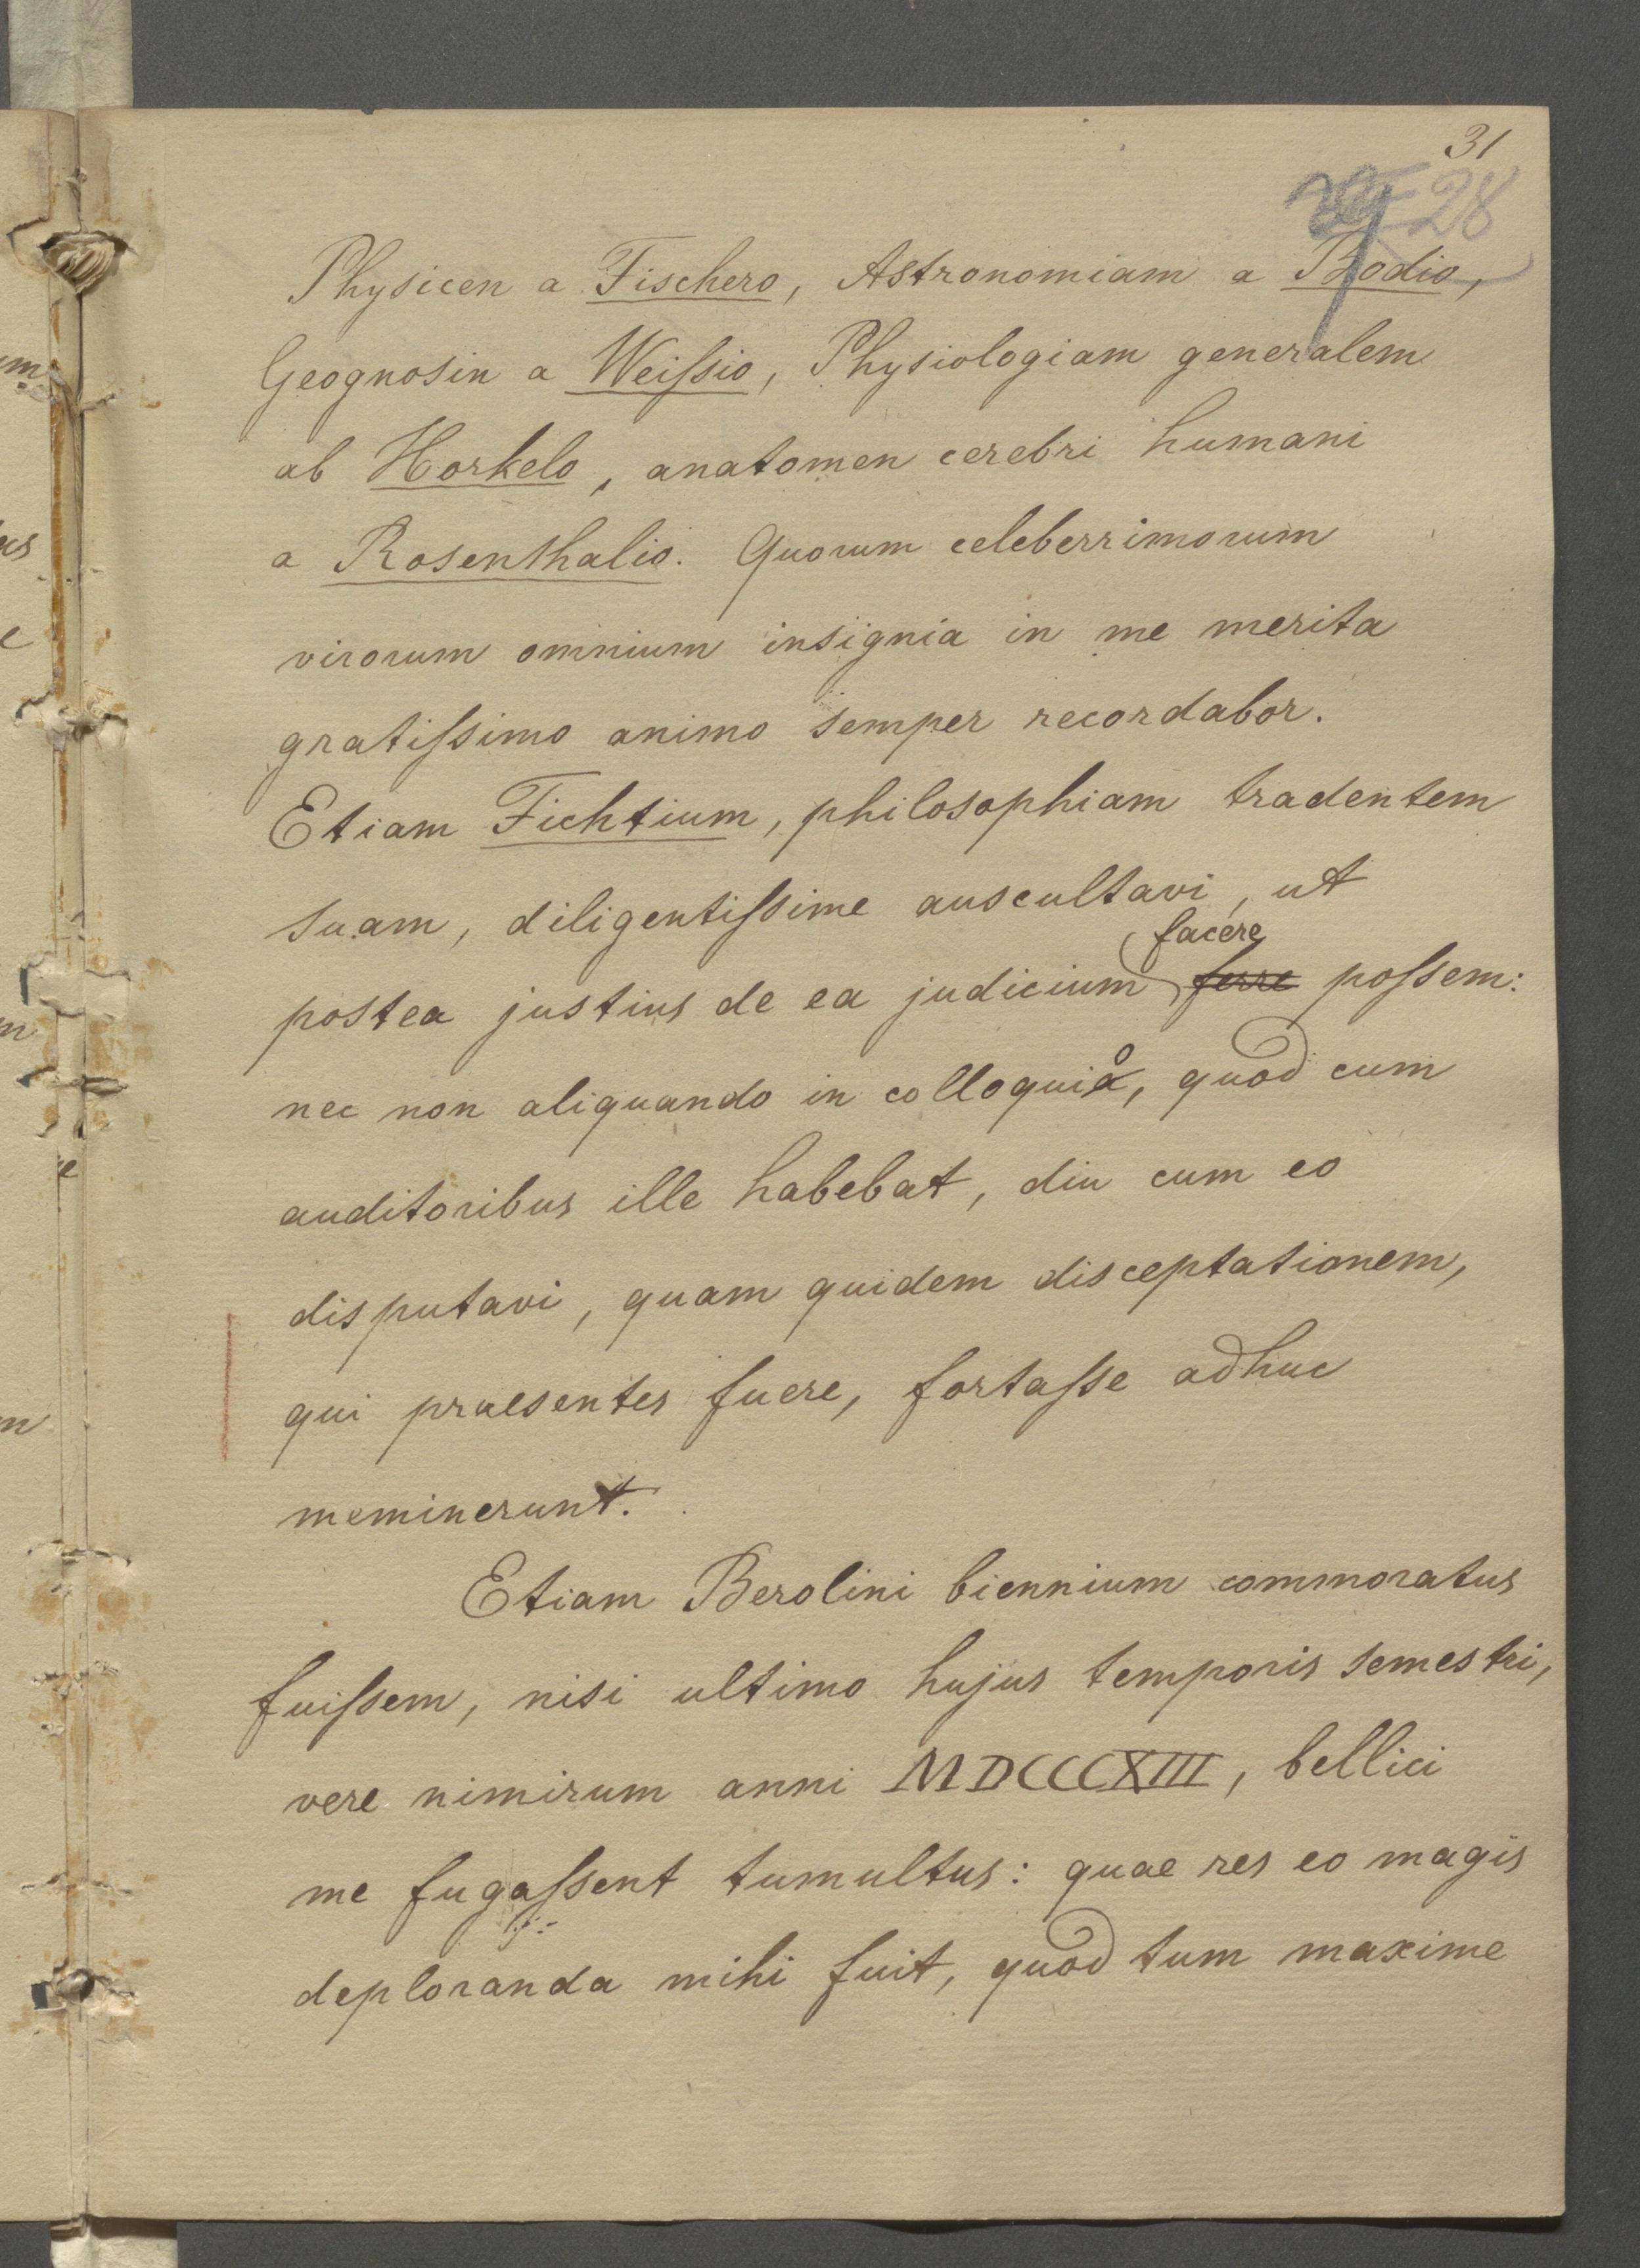 31
28
Physicen a Fischero, Astronomiam a Bodio,
Geognosin a Weiſsio, Physiologiam generalem
ab Horkelo, anatomen cerebri humani
a Rosenthalio. Quorum celeberrimorum
virorum omnium insignia in me merita
gratiſsimo animo semper recordabor.
Etiam Fichtium, philosophiam tradentem
suam, diligentiſsime auscultavi, ut
facere
postea justius de ea judicium ferre poſsem:
nec non aliquando in colloquio, quod cum
auditoribus ille habebat, diu cum eo
disputavi, quam quidem disceptationem,
qui praesentes fuere, fortaſse adhuc
meminerunt.
Etiam Berolini biennium commoratus
fuiſsem, nisi ultimo hujus temporis semestri,
vere nimirum anni MDCCCXIII, bellici
me fugaſsent tumultus: quae res eo magis
deploranda mihi fuit, quod tum maxime